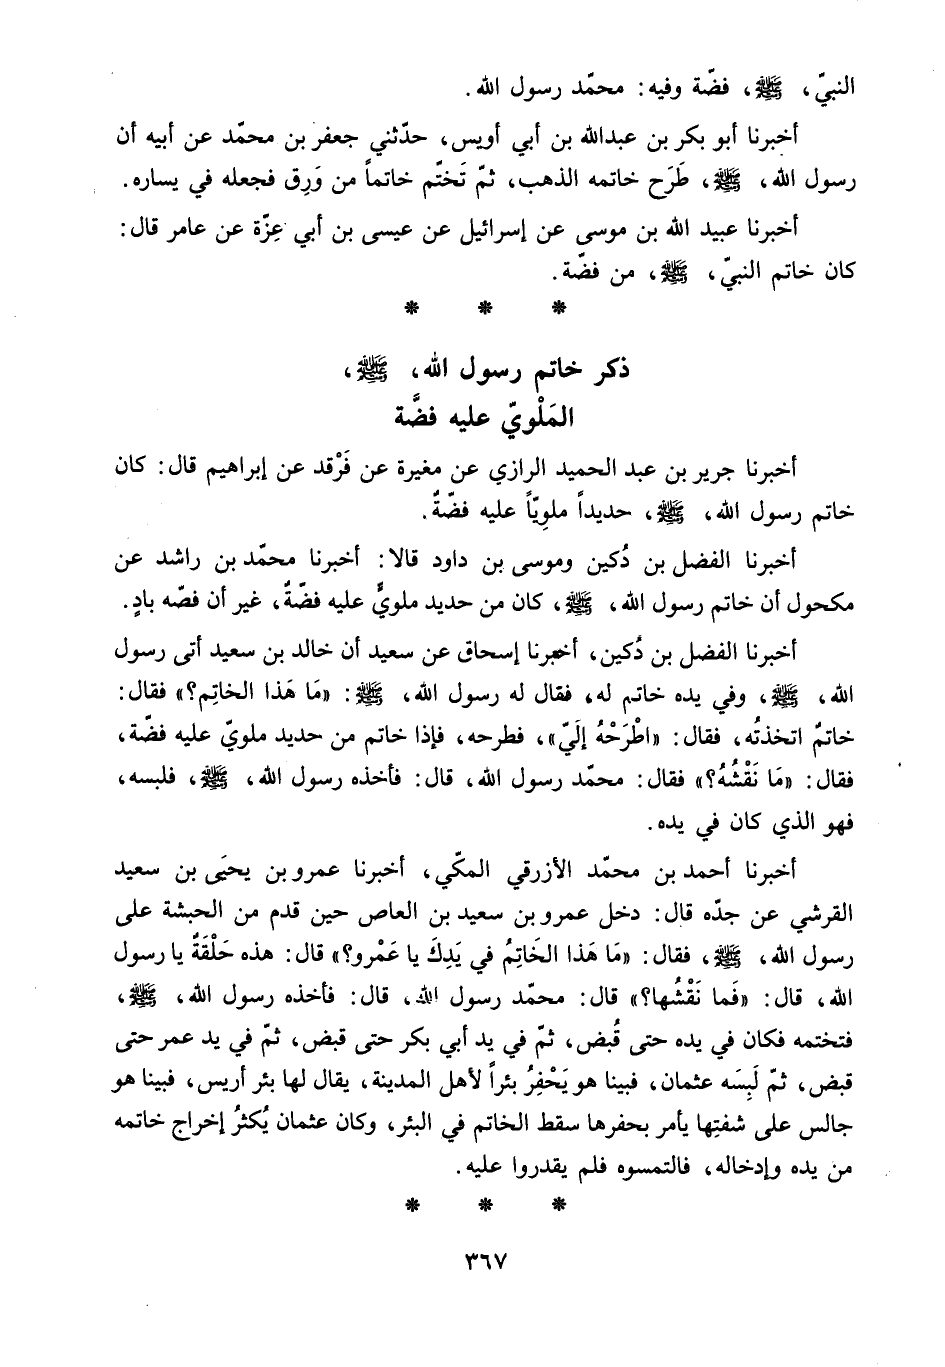 النبيّ، ﷺ، فضّة وفيه: محمّد رسول الله.
أخبرنا أبو بكر بن عبدالله بن أبي أويس، حدّثني جعفر بن محمّد عن أبيه أن
رسول الله، ﷺ، طَرَح خاتمه الذهب، ثمّ تَختّم خاتماً من وَرِق فجعله في يساره.
أخبرنا عبيد الله بن موسى عن إسرائيل عن عيسى بن أبي عِزّة عن عامر قال:
كان خاتم النبيّ، ﷺ، من فضّة.
* * *
ذكر خاتم رسول الله، ﷺ،
المَلْويّ عليه فضَّة
أخبرنا جرير بن عبد الحميد الرازي عن مغيرة عن فَرْقد عن إبراهيم قال: كان
خاتم رسول الله، ﷺ، حديداً ملوِيّاً عليه فضّةٌ.
أخبرنا الفضل بن دُكين وموسى بن داود قالا: أخبرنا محمّد بن راشد عن
مكحول أن خاتم رسول الله، ﷺ، كان من حديد ملويٌّ عليه فضّةٌ، غير أن فصّه بادٍ.
أخبرنا الفضل بن دُكين، أخبرنا إسحاق عن سعيد أن خالد بن سعيد أتى رسول
الله، ﷺ، وفي يده خاتم له، فقال له رسول الله، ﷺ: «مَا هَذا الخاتِم؟» فقال:
خاتمٌ اتخذتُه، فقال: «اطْرَحْهُ إلَيّ»، فطرحه، فإذا خاتم من حديد ملويّ عليه فضّة،
فقال: «مَا نَقْشُهُ؟» فقال: محمّد رسول الله، قال: فأخذه رسول الله، ﷺ، فلبسه،
فهو الذي كان في يده.
أخبرنا أحمد بن محمّد الأزرقي المكّي، أخبرنا عمرو بن يحيَى بن سعيد
القرشي عن جدّه قال: دخل عمرو بن سعيد بن العاص حين قدم من الحبشة على
رسول الله، ﷺ، فقال: «مَا هَذا الخَاتِمُ في يَدِكَ يا عَمْرو؟» قال: هذه حَلْقَةٌ يا رسول
الله، قال: «فَما نَقْشُها؟» قال: محمّد رسول الله، قال: فأخذه رسول الله، ﷺ،
فتختمه فكان في يده حتى قُبض، ثمّ في يد أبي بكر حتى قبض، ثمّ في يد عمر حتى
قبض، ثمّ لَبِسَه عثمان، فبينا هو يَحْفِرُ بئراً لأهل المدينة، يقال لها بئر أريس، فبينا هو
جالس على شفتِها يأمر بحفرها سقط الخاتم في البئر، وكان عثمان يُكثرُ إخراج خاتمه
من يده وإدخاله، فالتمسوه فلم يقدروا عليه.
* * *
٣٦٧